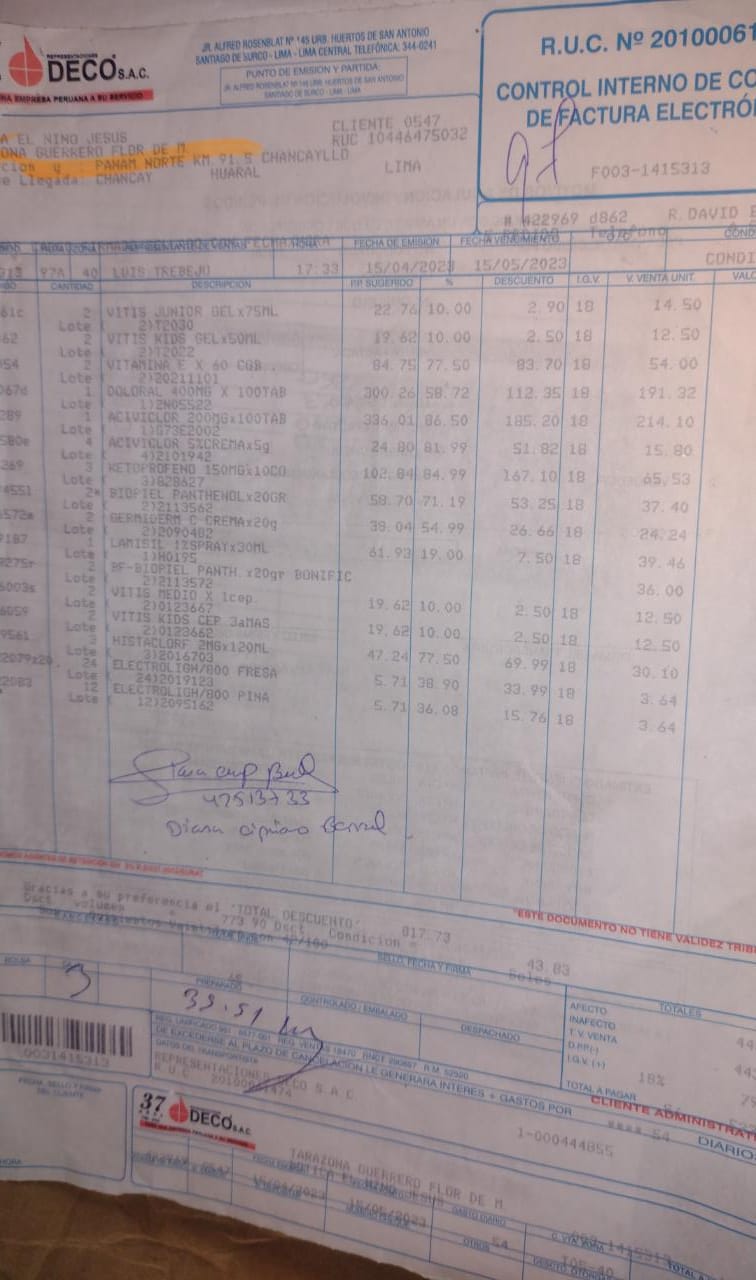 REPRESENTACIONES
DECO S.A.C.
EMPRESA PERUANA A SU SERVICIO
JR. ALFRED ROSENBLAT Nº 145 URB. HUERTOS DE SAN ANTONIO
SANTIAGO DE SURCO - LIMA - LIMA CENTRAL TELEFÓNICA: 344-0241
PUNTO DE EMISIÓN Y PARTIDA:
JR. ALFRED ROSENBLAT Nº 145 URB. HUERTOS DE SAN ANTONIO
SANTIAGO DE SURCO - LIMA - LIMA
R.U.C. Nº 20100061
CONTROL INTERNO DE CO
DE FACTURA ELECTRÓ
F003-1415313
A EL NINO JESUS CLIENTE 0547
ONA GUERRERO FLOR DE M RUC 10446475032
PANAM NORTE KM.91.5 CHANCAYLLO
e Llegada: CHANCAY HUARAL LIMA
# 422969 d862 R.DAVID
HORA FECHA DE EMISIÓN FECHA VENCIMIENTO
97A 40 LUIS TREBEJO 17:33 15/04/2023 15/05/2023 CONDI
CANTIDAD DESCRIPCIÓN P.P. SUGERIDO % DESCUENTO I.G.V. V. VENTA UNIT.
61c 2 VITIS JUNIOR GELx75ML 22.76 10.00 2.90 18 14.50
Lote 2)T2030
62 2 VITIS KIDS GELx50ML 19.62 10.00 2.50 18 12.50
Lote 2)T2022
54 2 VITAMINA E X 60 CGB. 84.75 77.50 83.70 18 54.00
Lote 2)20211101
067d 1 DOLORAL 400MG X 100TAB 300.26 58.72 112.35 18 191.32
Lote 1)2N05522
289 1 ACIVICLOR 200MGx100TAB 336.01 86.50 185.20 18 214.10
Lote 1)G73E2002
580e 4 ACIVICLOR 5%CREMAx5g 24.80 81.99 51.82 18 15.80
Lote 4)2101942
369 3 KETOPROFENO 150MGx10CO 102.84 84.99 167.10 18 65.53
Lote 3)828627
4551 2* BIOPIEL PANTHENOLx20GR 58.70 71.19 53.25 18 37.40
Lote 2)2113562
6572a 2 GERMIDERM C CREMAx20g 38.04 54.99 26.66 18 24.24
Lote 2)2090482
9187 1 LAMISIL 1%SPRAYx30ML 61.93 19.00 7.50 18 39.46
Lote 1)H0195
9275r 2 BF-BIOPIEL PANTH.x20gr BONIFIC 36.00
Lote 2)2113572
6003s 2 VITIS MEDIO X 1cep. 19.62 10.00 2.50 18 12.50
Lote 2)0123667
6059 2 VITIS KIDS CEP 3aMAS 19.62 10.00 2.50 18 12.50
Lote 2)0123662
9561 3 HISTACLORF 2MGx120ML 47.24 77.50 69.99 18 30.10
Lote 3)2016703
24 ELECTROLIGH/800 FRESA 5.71 38.90 33.99 18 3.64
Lote 24)2019123
2083 12 ELECTROLIGH/800 PINA 5.71 36.08 15.76 18 3.64
Lote 12)2095162
47513733
Gracias a su preferencia el 'TOTAL DESCUENTO' 817.73
Dsct volumen = 773.90 Dsct Condicion = 43.83
*ESTE DOCUMENTO NO TIENE VALIDEZ TRIB
Soles
SELLO, FECHA Y FIRMA
BOLSA
3
PREPARADO
39.51
CONTROLADO / EMBALADO
DESPACHADO
TOTALES
AFECTO
INAFECTO
T.V. VENTA
I.G.V. (+) 18%
TOTAL A PAGAR
0031415313
DE EXCEDERSE AL PLAZO DE CANCELACIÓN LE GENERARA INTERES + GASTOS POR
CLIENTE ADMINISTRAT
DATOS DEL TRANSPORTISTA
REPRESENTACIONES DECO S.A.C.
R.U.C.
FECHA, SELLO Y FIRMA
DEL CLIENTE
HORA
37
DECO S.A.C.
1-000444855
DIARIO
TARAZONA GUERRERO FLOR DE M
BOTICA EL NINO JESUS
15/04/2023
15/05/2023
GASTO DIARIO
OTROS
54